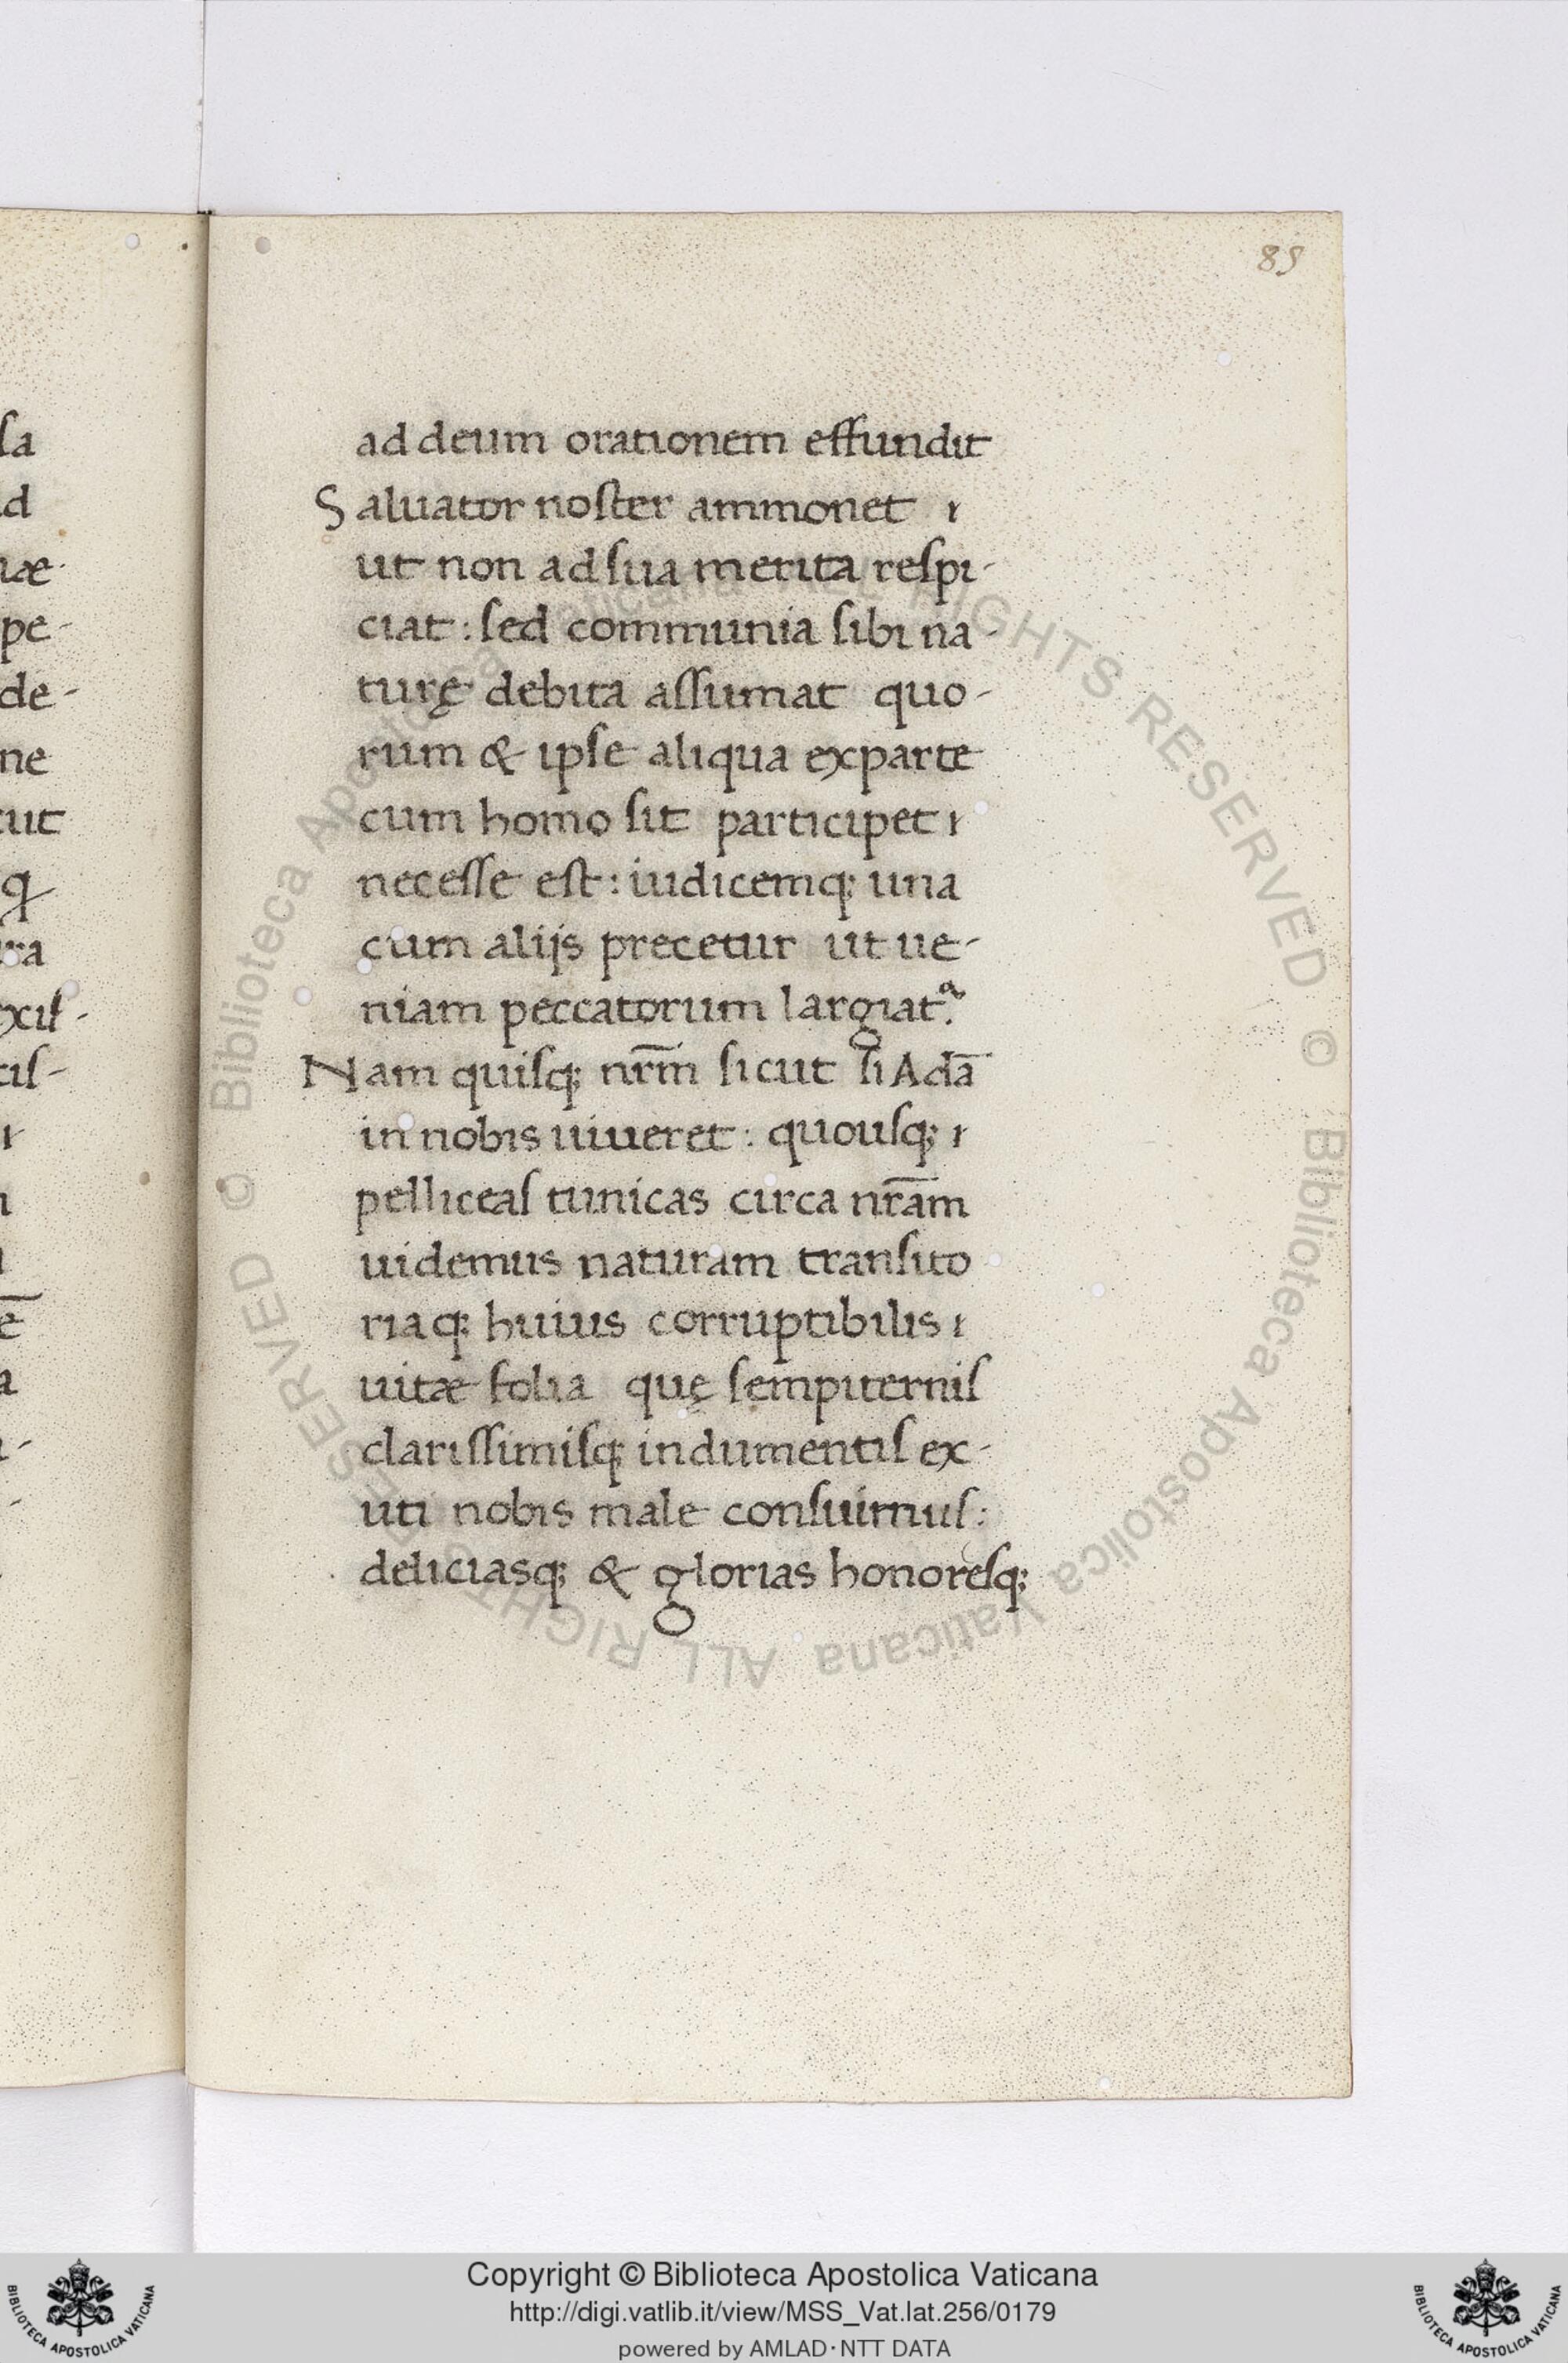 85
ad deum orationem effundit
Saluator noster ammonet
ut non ad sua merita respi-
ciat: sed communia sibi na-
turę debita assumat quo-
rum & ipse aliqua ex parte
cum homo sit participet
necesse est: iudicemq; una
cum alijs precetur ut ue-
niam peccatorum largiat.
Nam quisq; nr̄m sicut si Adā
in nobis uiueret: quousq;
pelliceas tunicas circa nr̄am
uidemus naturam transito
riaq; huius corruptibilis
uitæ folia quę sempiternis
clarissimisq; indumentis ex-
uti nobis male consuimus:
deliciasq; & glorias honoresq;
sa
d
uæ
pe-
de-
ne
tut
ra
xis-
tis-
Copyright © Biblioteca Apostolica Vaticana
http://digi.vatlib.it/view/MSS_Vat.lat.256/0179
powered by AMLAD·NTT DATA
BIBLIOTECA APOSTOLICA VATICANA
BIBLIOTECA APOSTOLICA VATICANA
© Biblioteca Apostolica Vaticana ALL RIGHTS RESERVED
© Biblioteca Apostolica Vaticana ALL RIGHTS RESERVED